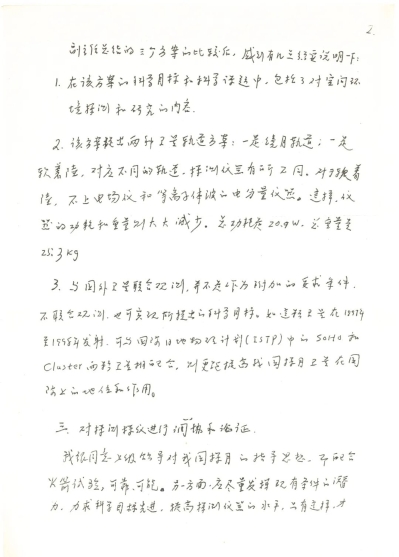 2.
副主任总结的三个方案的比较后，感到有几点经需说明一下：
1. 在该方案的科学目标和科学课题中，包括了对空间环
境探测和研究的内容.
2. 该方案提出两种卫星轨道方案：一是绕月轨道；一是
软着陆，对应不同的轨道，探测仪器有所不同。对于软着
陆，不上电场仪和等离子体波的电分量仪器。这样，仪
器的功耗和重量则大大减少。总功耗是20.9W，总重量是
25.3kg
3. 与国外卫星联合观测，并不是作为附加的要求条件，
不联合观测，也可实现所提出的科学目标。如这颗卫星在1997年
至1998年发射，可与国际日地物理计划(ISTP)中的SOHO和
Cluster两种卫星相配合，则更能提高我国探月卫星在国
际上的地位和作用。
三. 对探测模级进行调整和论证.
我们同意上级领导对我国探月的指导思想，即配合
火箭试验，可靠、可能。另一方面，应尽量发挥现有条件的潜
力，力求科学目标先进，提高探测仪器的水平，只有这样，才